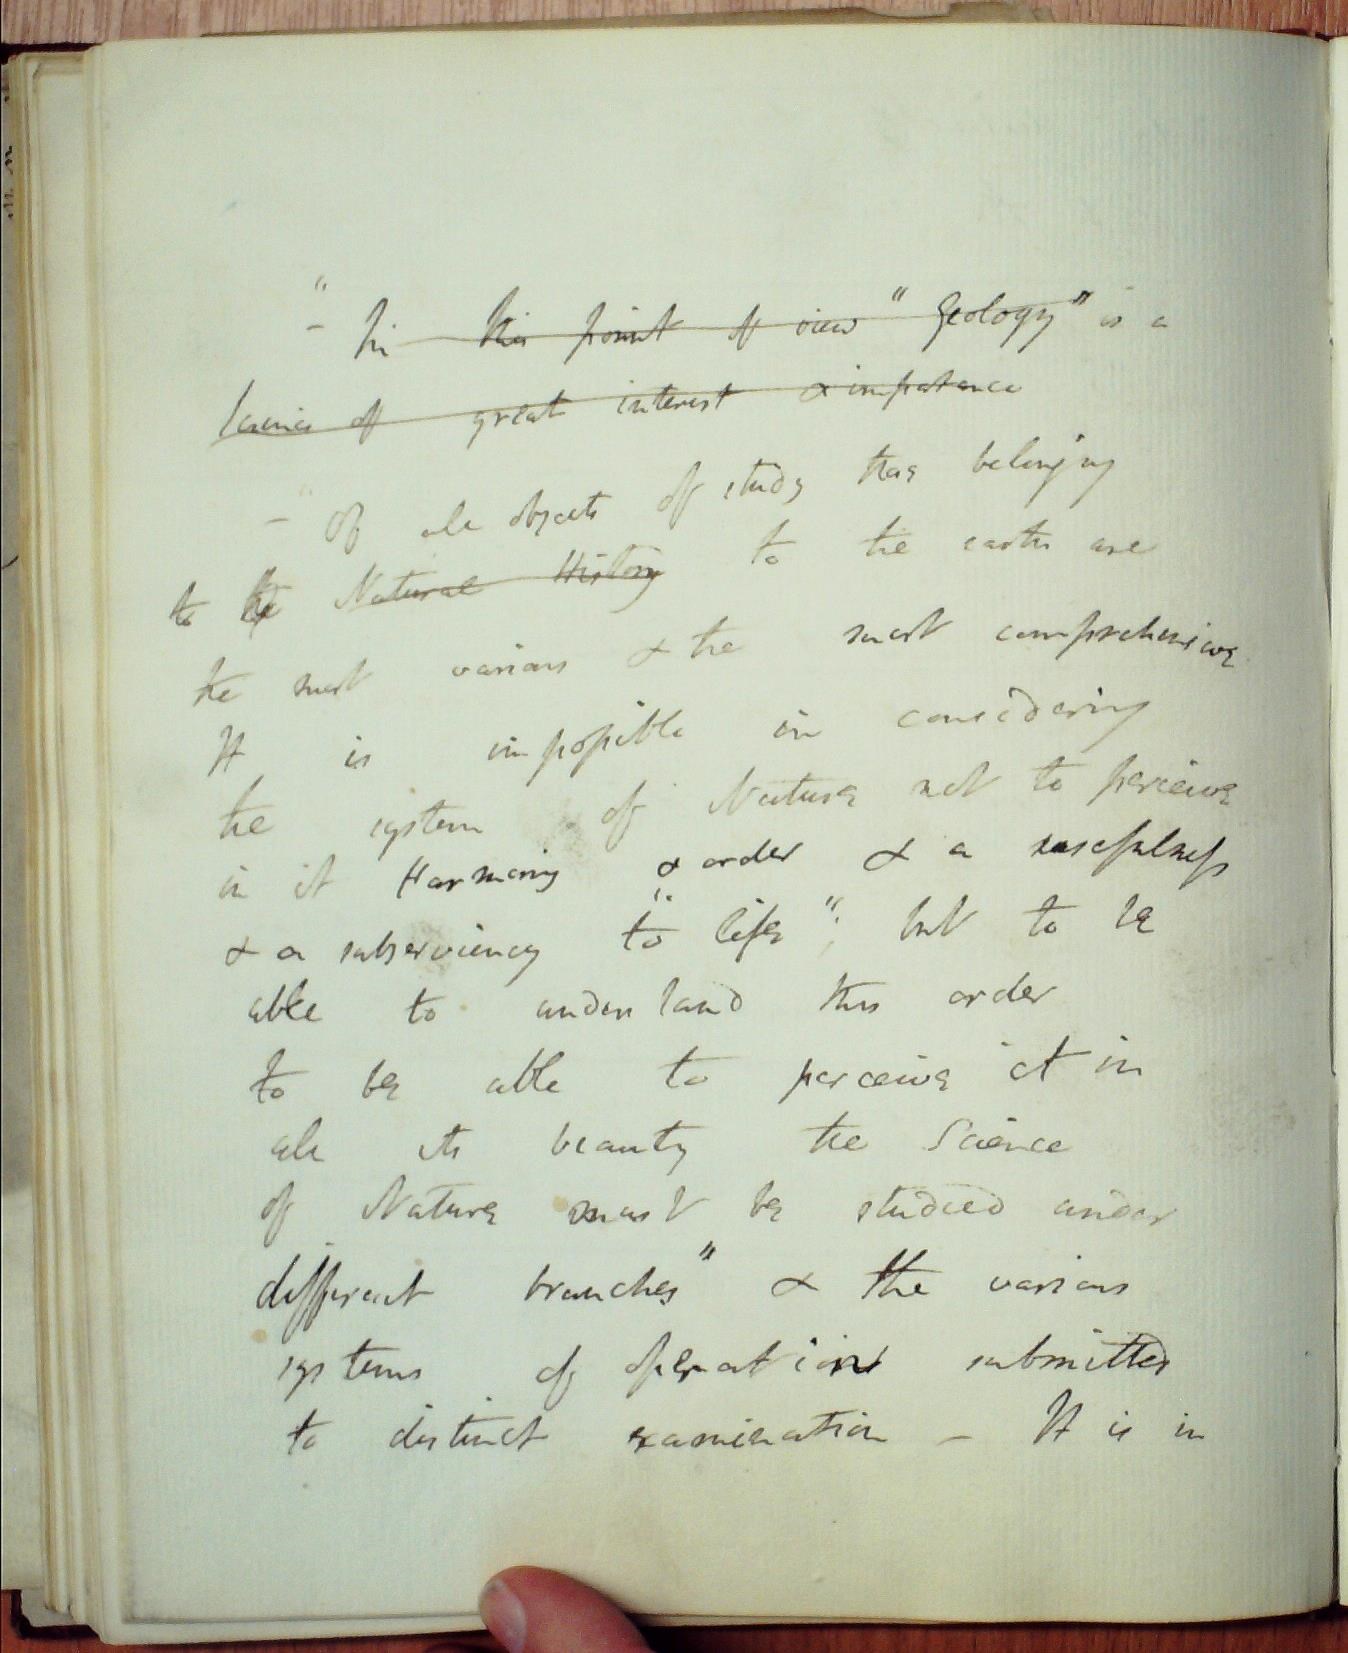 " - In this point of view " Geology" is a
science of great interest & importance
- Of all objects of study those belonging
to the Natural History to the earth are
the most various & the most comprehensive
It is impossible in considering
the system of Nature not to perceive
in it Harmony & order & a usefulness
& a subserviency to "life"; but to be
able to understand this order
to be able to perceive it in
all its beauty the Science
of Nature must be studied under
different branches" & the various
systems of operations submitted
to distinct examination - It is in